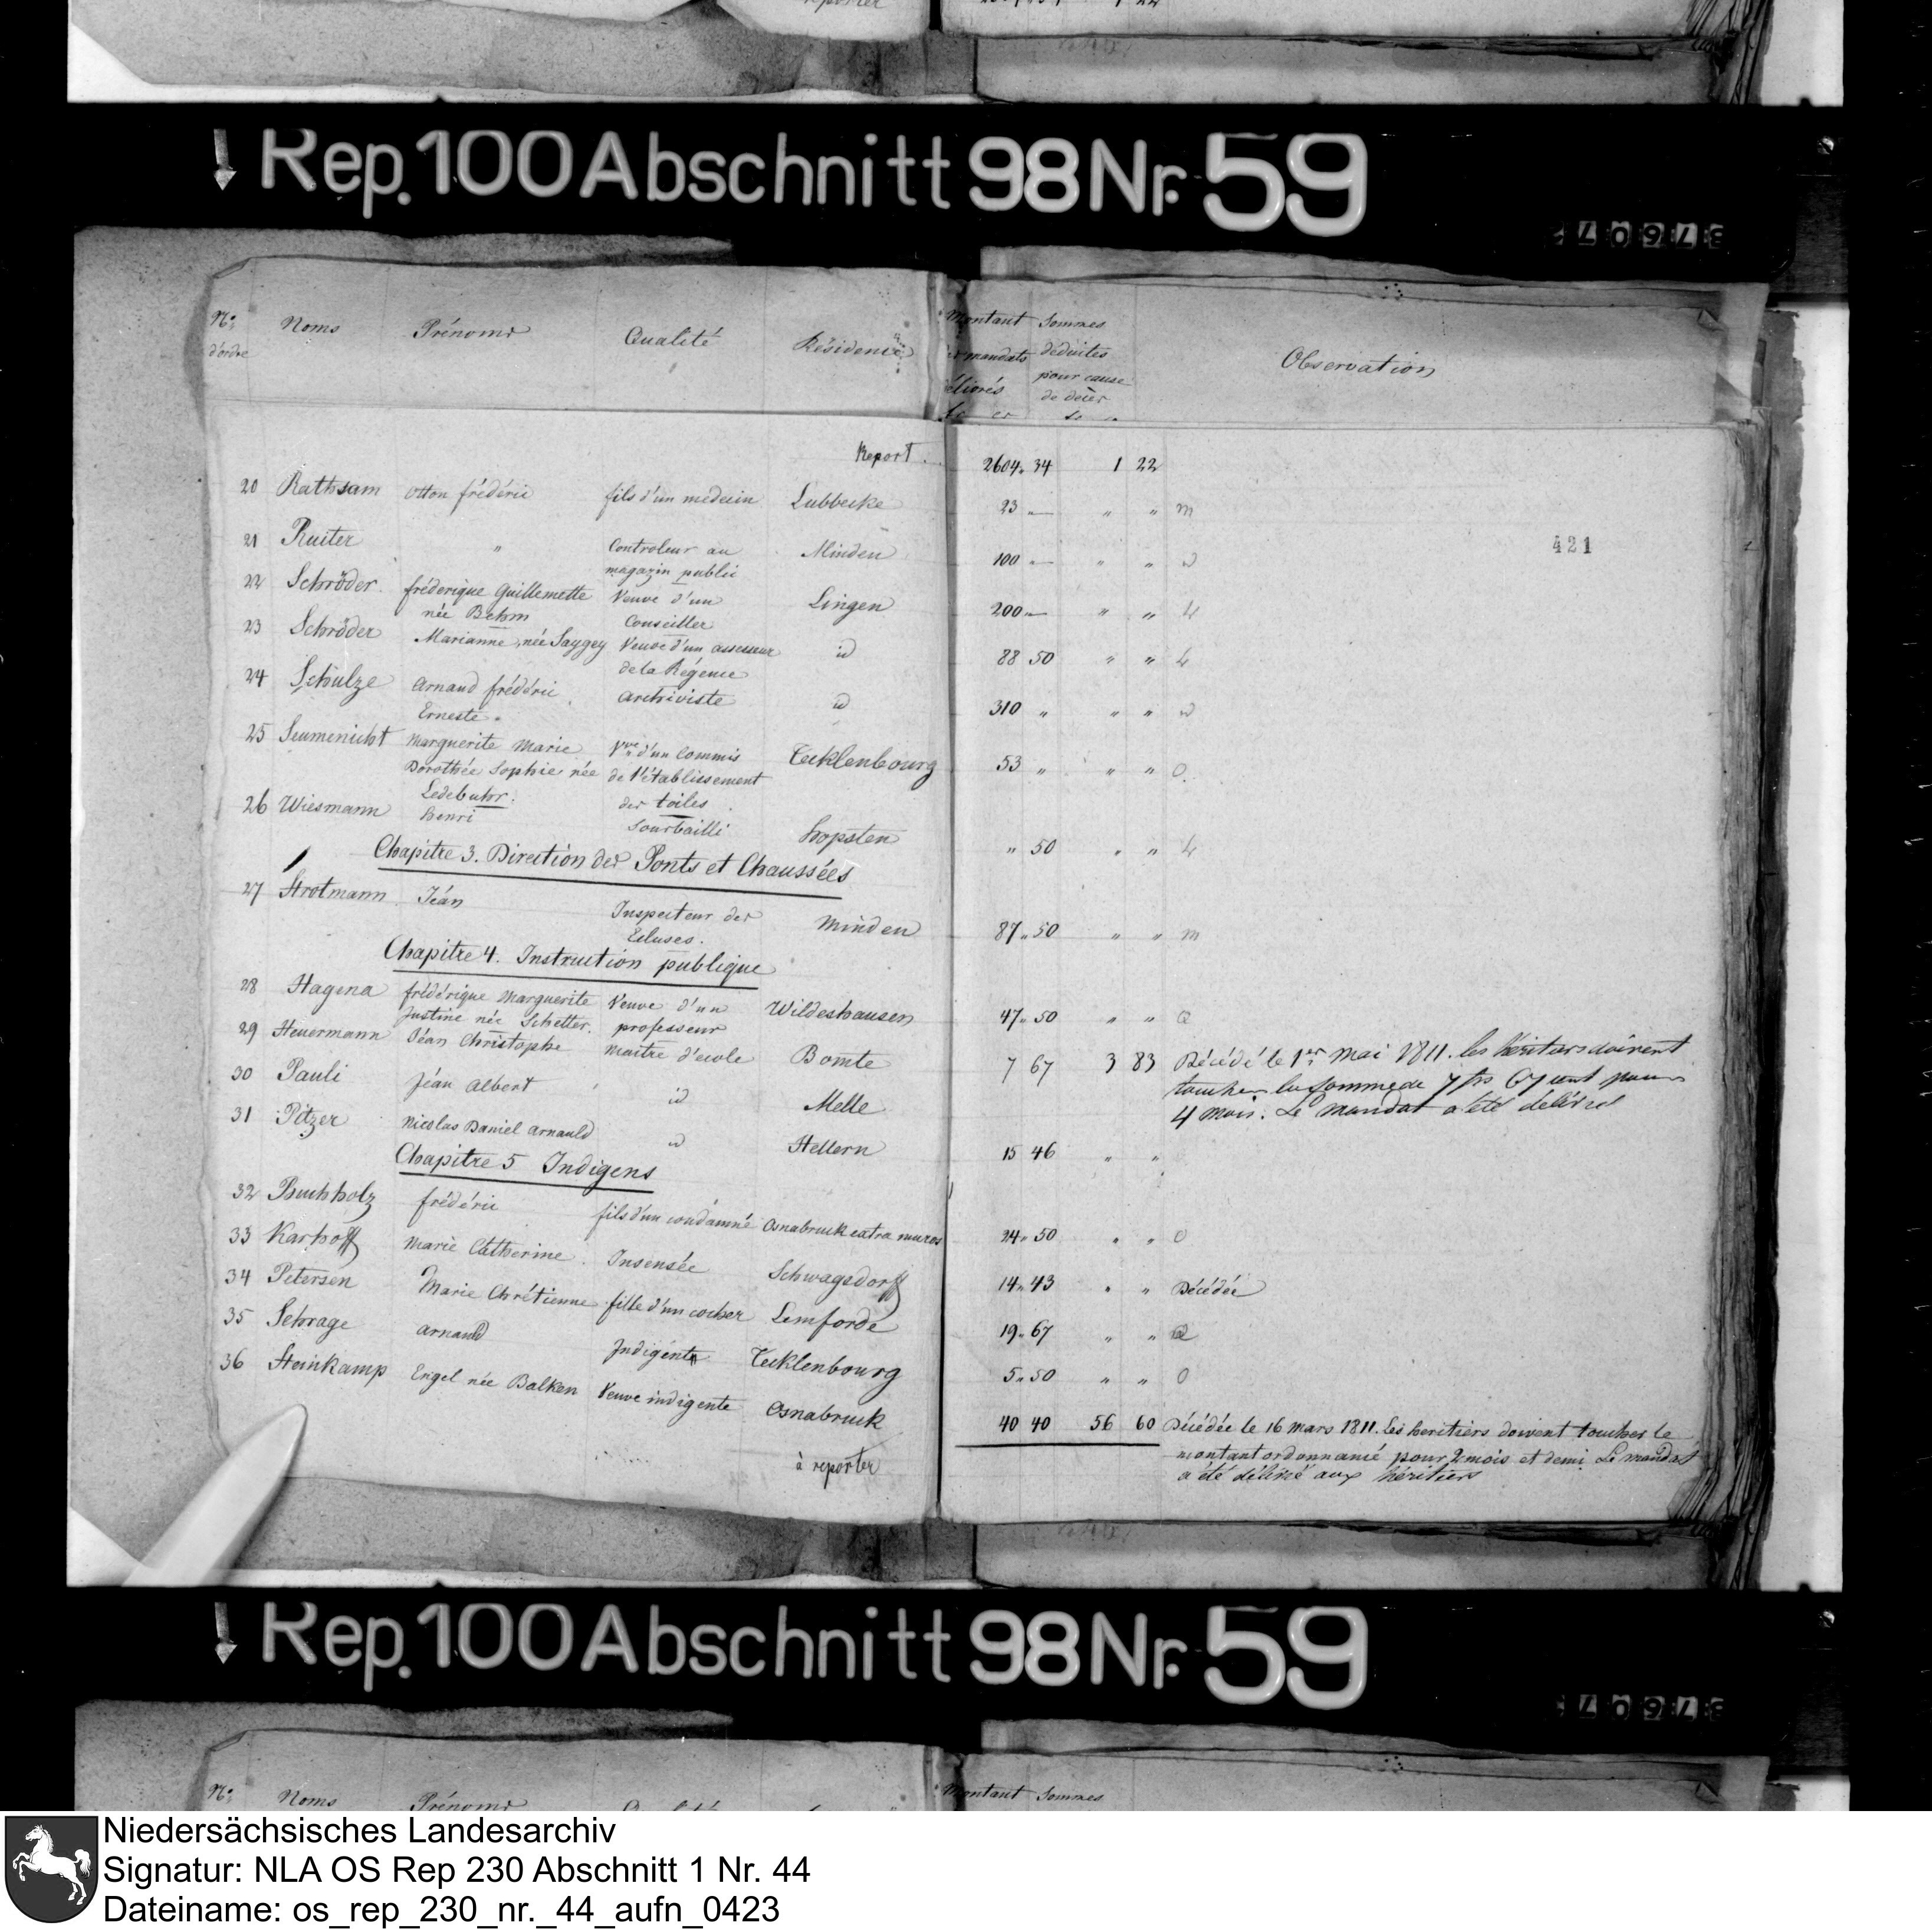 reporter
2604 34 1 22
Rep. 100 Abschnitt 98 Nr. 59
N.o d'ordre Noms Prénoms Qualité Résidence Montant des mandats délivrés Sommes déduites pour cause de décès Observation
fr cs
Report 2604. 34 1 22
421
20 Rathsam Otton frédéric fils d'un médecin Lubbecke 23 „ — „ „ m
21 Ruiter „ Controleur au Minden 100 „ — „ „
magazin public
22 Schröder frédérique Guillemette Veuve d'un Lingen 200 „ — „ „ L
née Behm Conseiller
23 Schröder Marianne, née Saygey Veuve d'un assesseur id 88 50 „ „ L
de la Régence
24 Schulze Arnaud frédéric archiviste id 310 „ „ „
Erneste.
25 Seumenicht Marguerite Marie Vve d'un Commis Tecklenbourg 53 „ „ „ O.
Dorothée Sophie née de l'établissement
Ledebuhr. des toiles
26 Wiesmann henri Sourbailli hopsten „ 50 „ „ L
Chapitre 3. Direction des Ponts et Chaussées
27 Strotmann Jéan Inspecteur des Minden 87 „ 50 „ „ m
Ecluses.
Chapitre 4. Instruction publique
28 Hagena frédérique Marguerite Veuve d'un Wildeshausen 47 „ 50 „ „ Q
Justine née Schetter. professeur
29 Heuermann Jéan Christophe maitre d'ecole Bomte 7 67 3 83 Décédé le 1er Mai 1811. les héritiers doivent
toucher la somme de 7 frs 67 cent pour
4 mois. Le mandat a été délivré
30 Pauli Jéan Albert id Melle
31 Pitzer Nicolas Daniel Arnauld id Hellern 15 46 „ „
Chapitre 5 Indigens
32 Buchholz frédéric fils d'un condamné Osnabruck extra muros 24 „ 50 „ „ O
33 Karhoff Marie Catherine Insensée Schwagsdorff 14 „ 43 „ „ Décédée
34 Petersen Marie Chrétienne fille d'un cocher Lemforde 19 „ 67 „ „ Q
35 Schrage Arnauld Indigent Tecklenbourg 5 „ 50 „ „ O
36 Steinkamp Engel née Balken Veuve indigente Osnabruck 40 40 56 60 Décédée le 16 Mars 1811. Les heritiers doivent toucher le
montant ordonnancé pour 2 mois et demi Le mandat
a été délivré aux héritiers
à reporter
Rep. 100 Abschnitt 98 Nr. 59
N.o Noms Prénoms Montant Sommes
Niedersächsisches Landesarchiv
Signatur: NLA OS Rep 230 Abschnitt 1 Nr. 44
Dateiname: os_rep_230_nr._44_aufn_0423